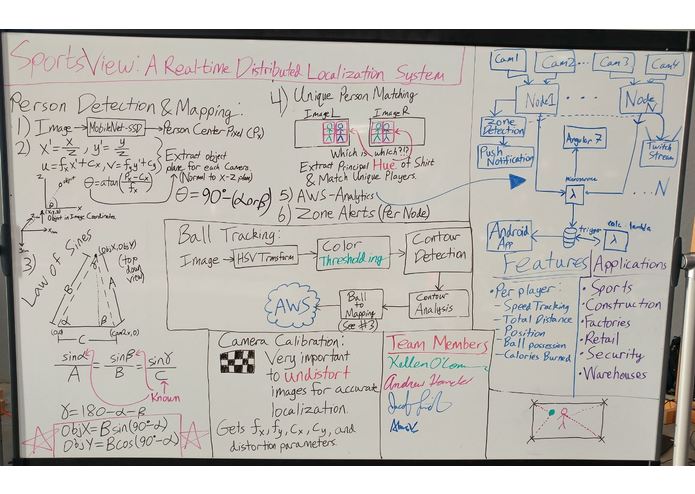 SportsView: A Real-time Distributed Localization System
Person Detection & Mapping:
1) Image → MobileNet-SSD → Person Center-Pixel (Px)
2) x' = x/z , y' = y/z
u = fx x' + cx, v = fy y' + cy
θ = atan((Px - Cx)/fx)
Extract object
plane for each camera.
(Normal to x-z plane)
θ = 90° - (α or β)
object
Object in Image Coordinates
3) Law of Sines
(objX, objY)
(top
down
view)
B
γ
A
α
β
(0,0)
C
(cam2x,0)
sinα/A = sinβ/B = sinγ/C
Known
γ = 180 - α - β
ObjX = B sin(90° - α)
ObjY = B cos(90° - α)
4) Unique Person Matching:
Image L
Image R
Which is which?!?
Extract Principal Hue of Shirt
& Match Unique Players.
5) AWS-Analytics
6) Zone Alerts (Per Node)
Ball Tracking:
Image → HSV Transform → Color
Thresholding → Contour
Detection
Contour
Analysis
Ball
to
Mapping
(See #3)
AWS
Camera Calibration:
Very important
to undistort
images for accurate
localization.
Gets fx, fy, Cx, Cy, and
distortion parameters.
Team Members
Kellen
Andrew
Cam1
Cam2
...
Cam3
Cam4
Node1
...
Node N
Zone
Detection
Push
Notification
Angular 7
Twitch
Stream
...N
λ
Android
App
trigger
calc lambda
λ
Features
• Per player:
- Speed Tracking
- Total Distance
- Position
- Ball possession
- Calories Burned
Applications
• Sports
• Construction
• Factories
• Retail
• Security
• Warehouses